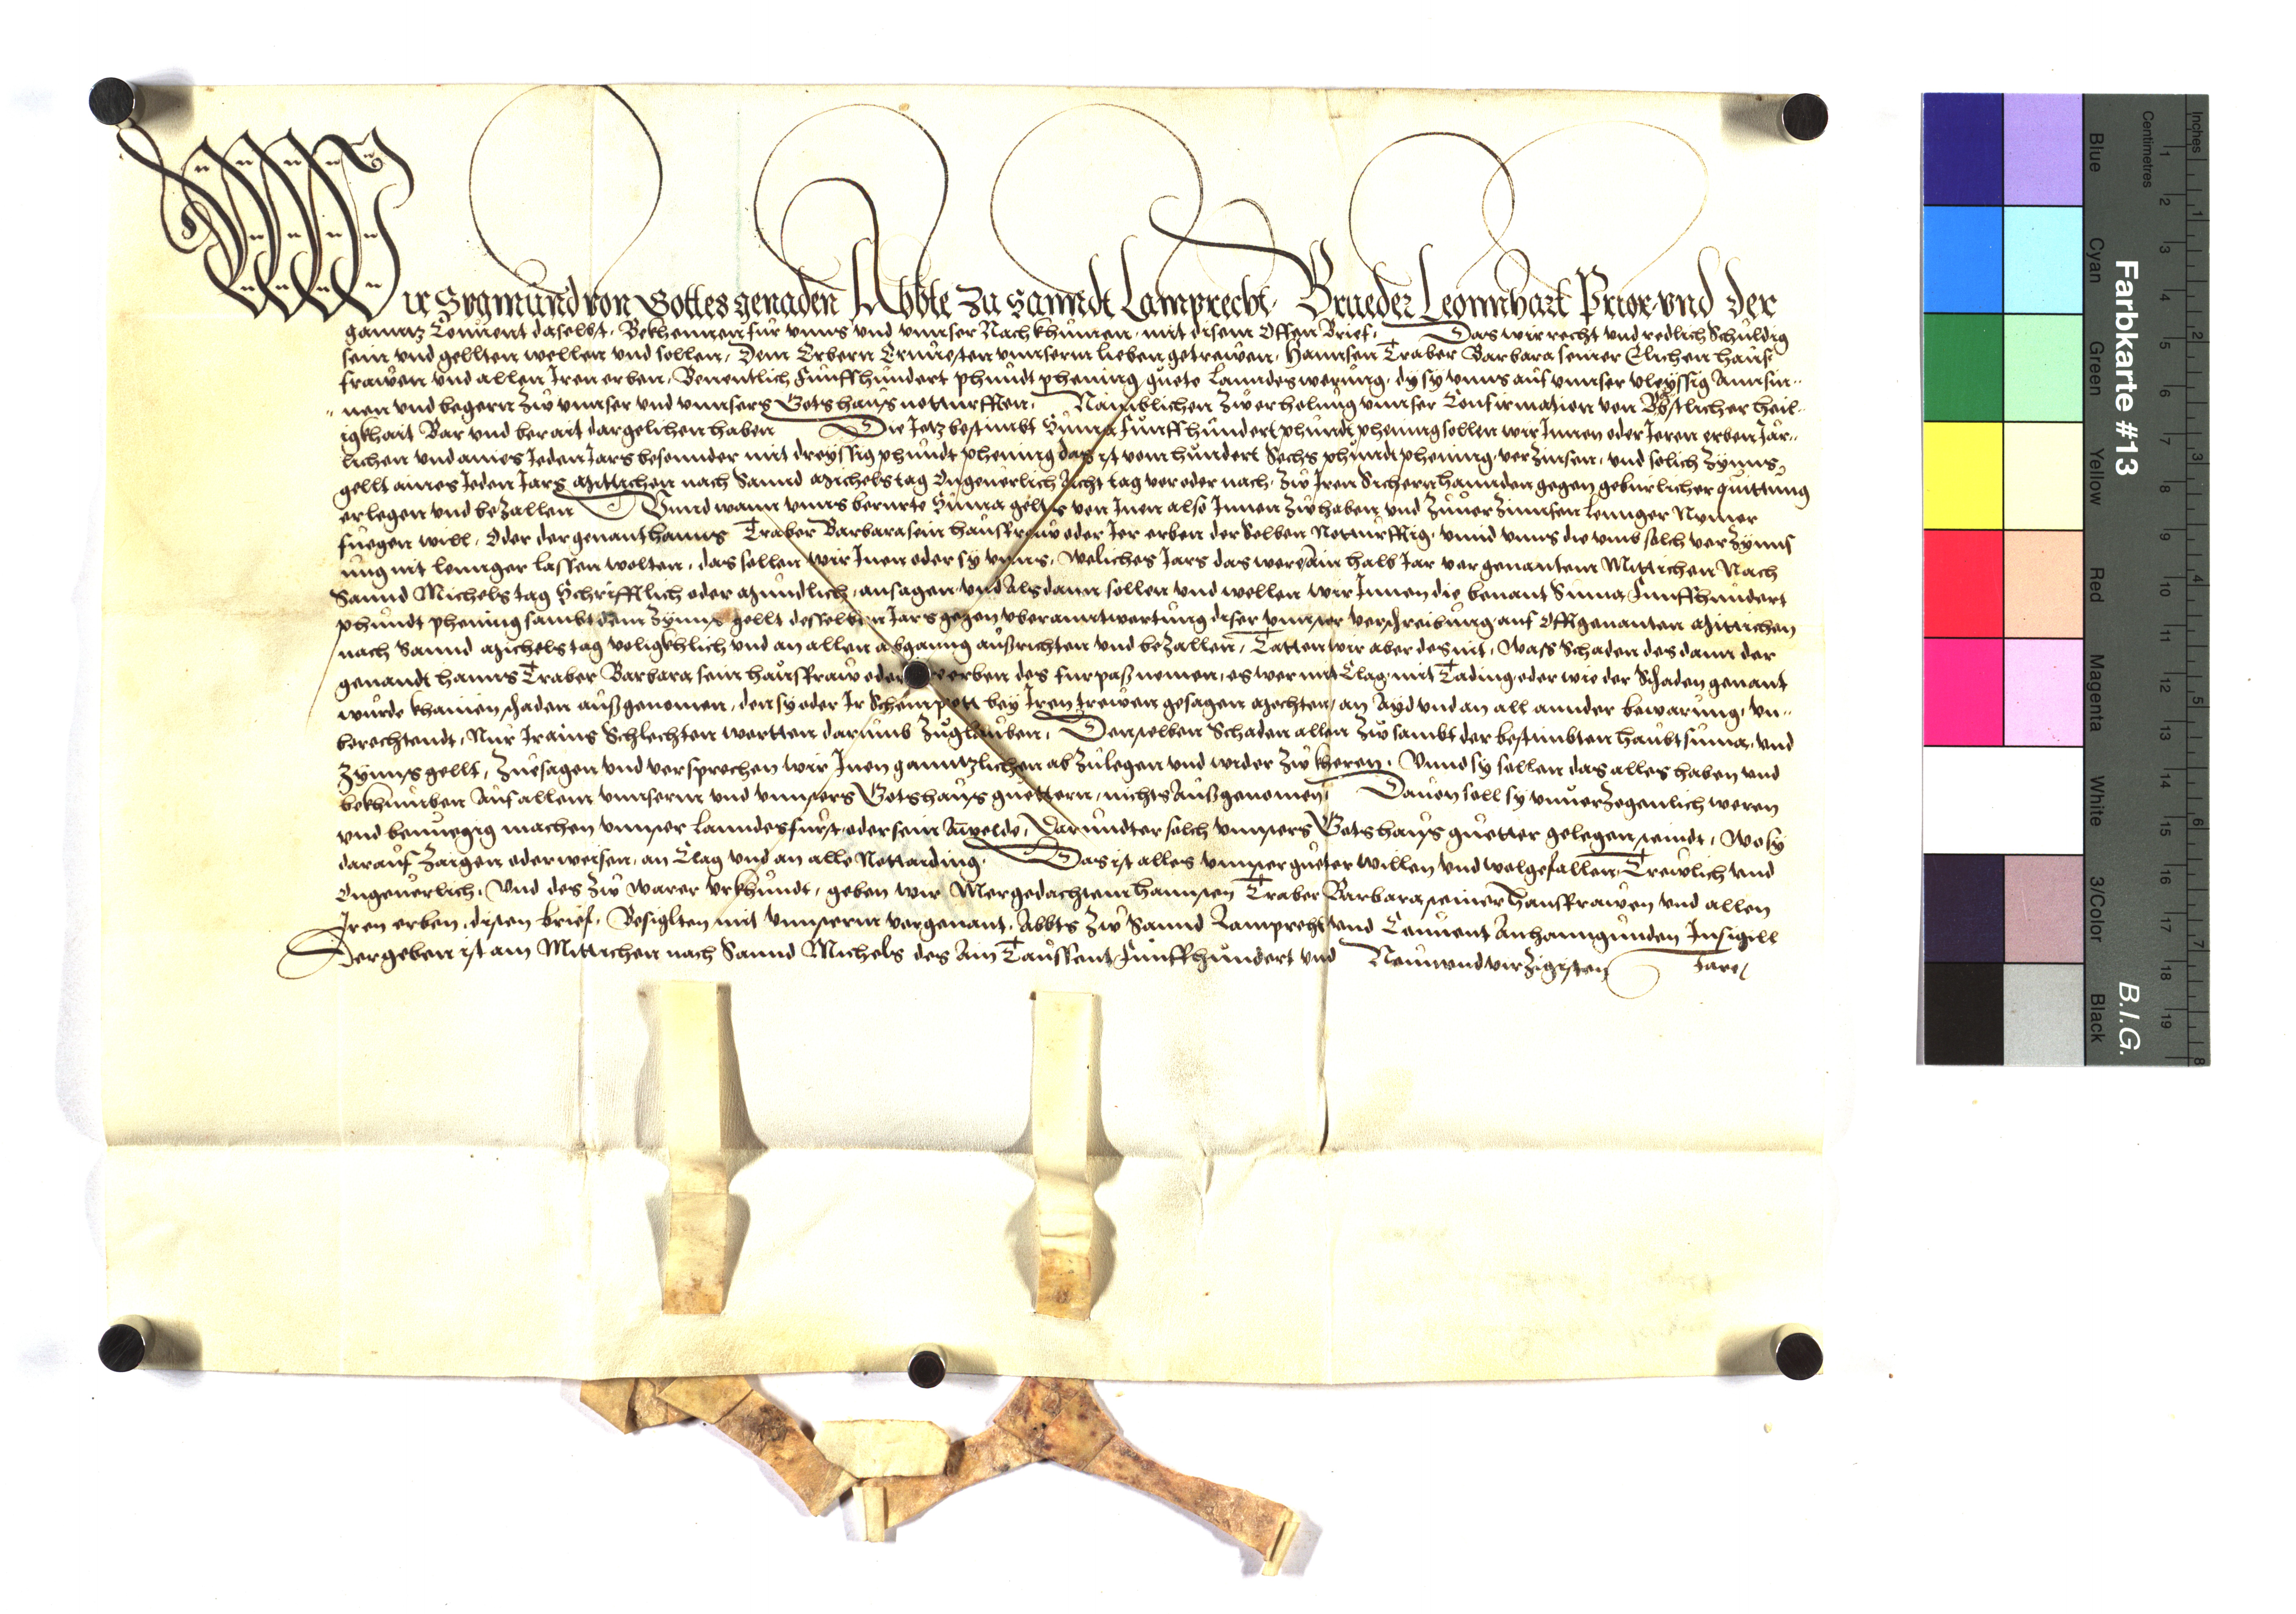 Wir Sygmund von Gottes genaden Abbte zu Sannd Lamprecht, Brueder Leonnhart Prior vnd der
gannz Conuent daselbst, Bekhennen für vnns vnd vnnser Nachkhumen, mit disem Offen Brief, Das wir recht vnd redlich Schuldig
sein vnd gellten wellen vnd sollen, Dem Erbern Ernnesten vnnserm lieben getrewen, Hannsen Traber Barbara seiner Elichen hauß
frawen vnd allen Iren erben, Benentlich Funffhundert phundt phening guete lanndeswerung, dy sy vnns auf vnnser vleyssig Annsin-
-nen vnd begern zw vnnser vnd vnnsers Gotshauss notturfften, Namblichen zw erholung vnnser Confirmation von Bbstlicher heil-
igkhait Bar vnd berait dargelichen haben Die Jetz bestimbt Suma funffhundert phundt phening sollen wir Innen oder Iren erben Jär-
lichen vnd aines Jeden Jars besonnder mit dreyssig phundt phening das ist vom hundert Sechs phundt phening, verzinsen, vnd solich Zynns
gellt aines Jeden Jars Mittichen nach Sannd Michels tag Vngeuerlich Acht tag vor oder nach, zw Iren Sichern hannden gegen geburlicher quittung
erlegen vnd bezallen Vnnd wann vnns berurte Suma gelts von Inen also Innen zw haben vnd zuuerzinnsen lennger Nymer
fuegen will, Oder der genant hanns Traber Barbara sein hausfraw oder Ier erben der selben Notturfftig, vnnd vnns die vmb solch verzynns
ung nit lennger lassen wolten, das sollen wir Inen oder sy vnns, weliches Jars das wer, Ain halb Jar vor genantem Mittichen Nach
Sannd Michels tag Schrifftlich oder Mundlich, ansagen vnd Alsdann sollen vnd wellen wir Innen die benant Suma Funffhundert
phundt phening sambt dem Zynns gellt desselben Jars gegen vberanntwertung diser vnnser verschreibung auf Offtgenanten Mittichen
nach Sannd Michels tag volligkhlich vnd an allen abganng außrichten vnd bezallen, Tätten wir aber des nit, wass Schaden des dann der
genandt hanns Traber Barbara sein hausfraw oder erben des furpaß nemen, es wer mit Clag mit Tading oder wie der Schaden genant
wurde khainen schaden außgenomen, den sy oder Ir Scheinpott bey Iren trewen gesagen Mechten, an Ayd vnd an all annder bewarung, vn-
berechtendt, Nur Irains Schlechten wortten darumb zuglauben, Denselben Schaden allen zw sambt der bestimbten haubtsuma, vnd
Zynns gellt, Zuesagen vnd versprechen wir Inen ganntzlichen ab zulegen vnd wider zw kheren, Vnnd sy sollen das alles haben vnd
bekhumben Auf allem vnnserm vnd vnnsers Gotshauss guettern, nichts Außgenomen, Dauon soll sy vnuerzogenlich weren
vnd benuegig machen vnnser lanndesfurst, oder sein Anwelde, Darundter solch vnnsers Gotshauss guetter gelegen seindt, wo sy
darauf zaigen oder weisen, an Clag vnd an alle Nottading, Das ist alles vnnser gueter willen vnd wolgefallen, Trewlich vnd
Vngeuerlich, Vnd des zw warer vrkhundt, geben wir Mergedachtem hannsen Traber Barbara seiner hausfrawen vnd allen
Iren erben, disen brief, Besiglten mit vnnserm vorgenant, Abbts zw Sannd Lamprecht vnd Conuent Anhanngunden Insigill
Der geben ist am Mittichen nach Sannd Michels des Ain Taussent Funffhundert vnd Neunundvierzigisten Jare
Farbkarte #13
B.I.G.
Inches
Centimetres
Blue
Cyan
Green
Yellow
Red
Magenta
White
3/Color
Black
1 2 3 4 5 6 7 8 9 10 11 12 13 14 15 16 17 18 19
1 2 3 4 5 6 7 8